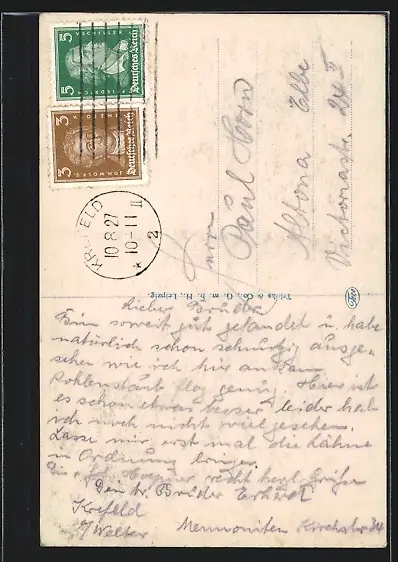 5 F. V. SCHILLER 5
Deutsches Reich
FRIEDRICH
3 3
Deutsches Reich
JOH. WOLFG.
KREFELD
10 8 27
10-11 II
* 2
Herrn
Paul Horn
Altona Elbe
Victoriastr.
Trinks & Co., G. m. b. H., Leipzig.
Lieber Bruder
Bin soweit gut gelandet u. habe
natürlich schon schmutzig ausge-
sehen wie ich hier an kam.
Kohlenstaub flog genug. Hier ist
es schon etwas besser leider hab
ich noch nicht viel gesehen.
Lasse mir erst mal die Zähne
in Ordnung bringen.
recht herzl. Grüße
Dein tr. Bruder Erhard
Krefeld
b/ Welter Mennoniten Kirchstr. 34